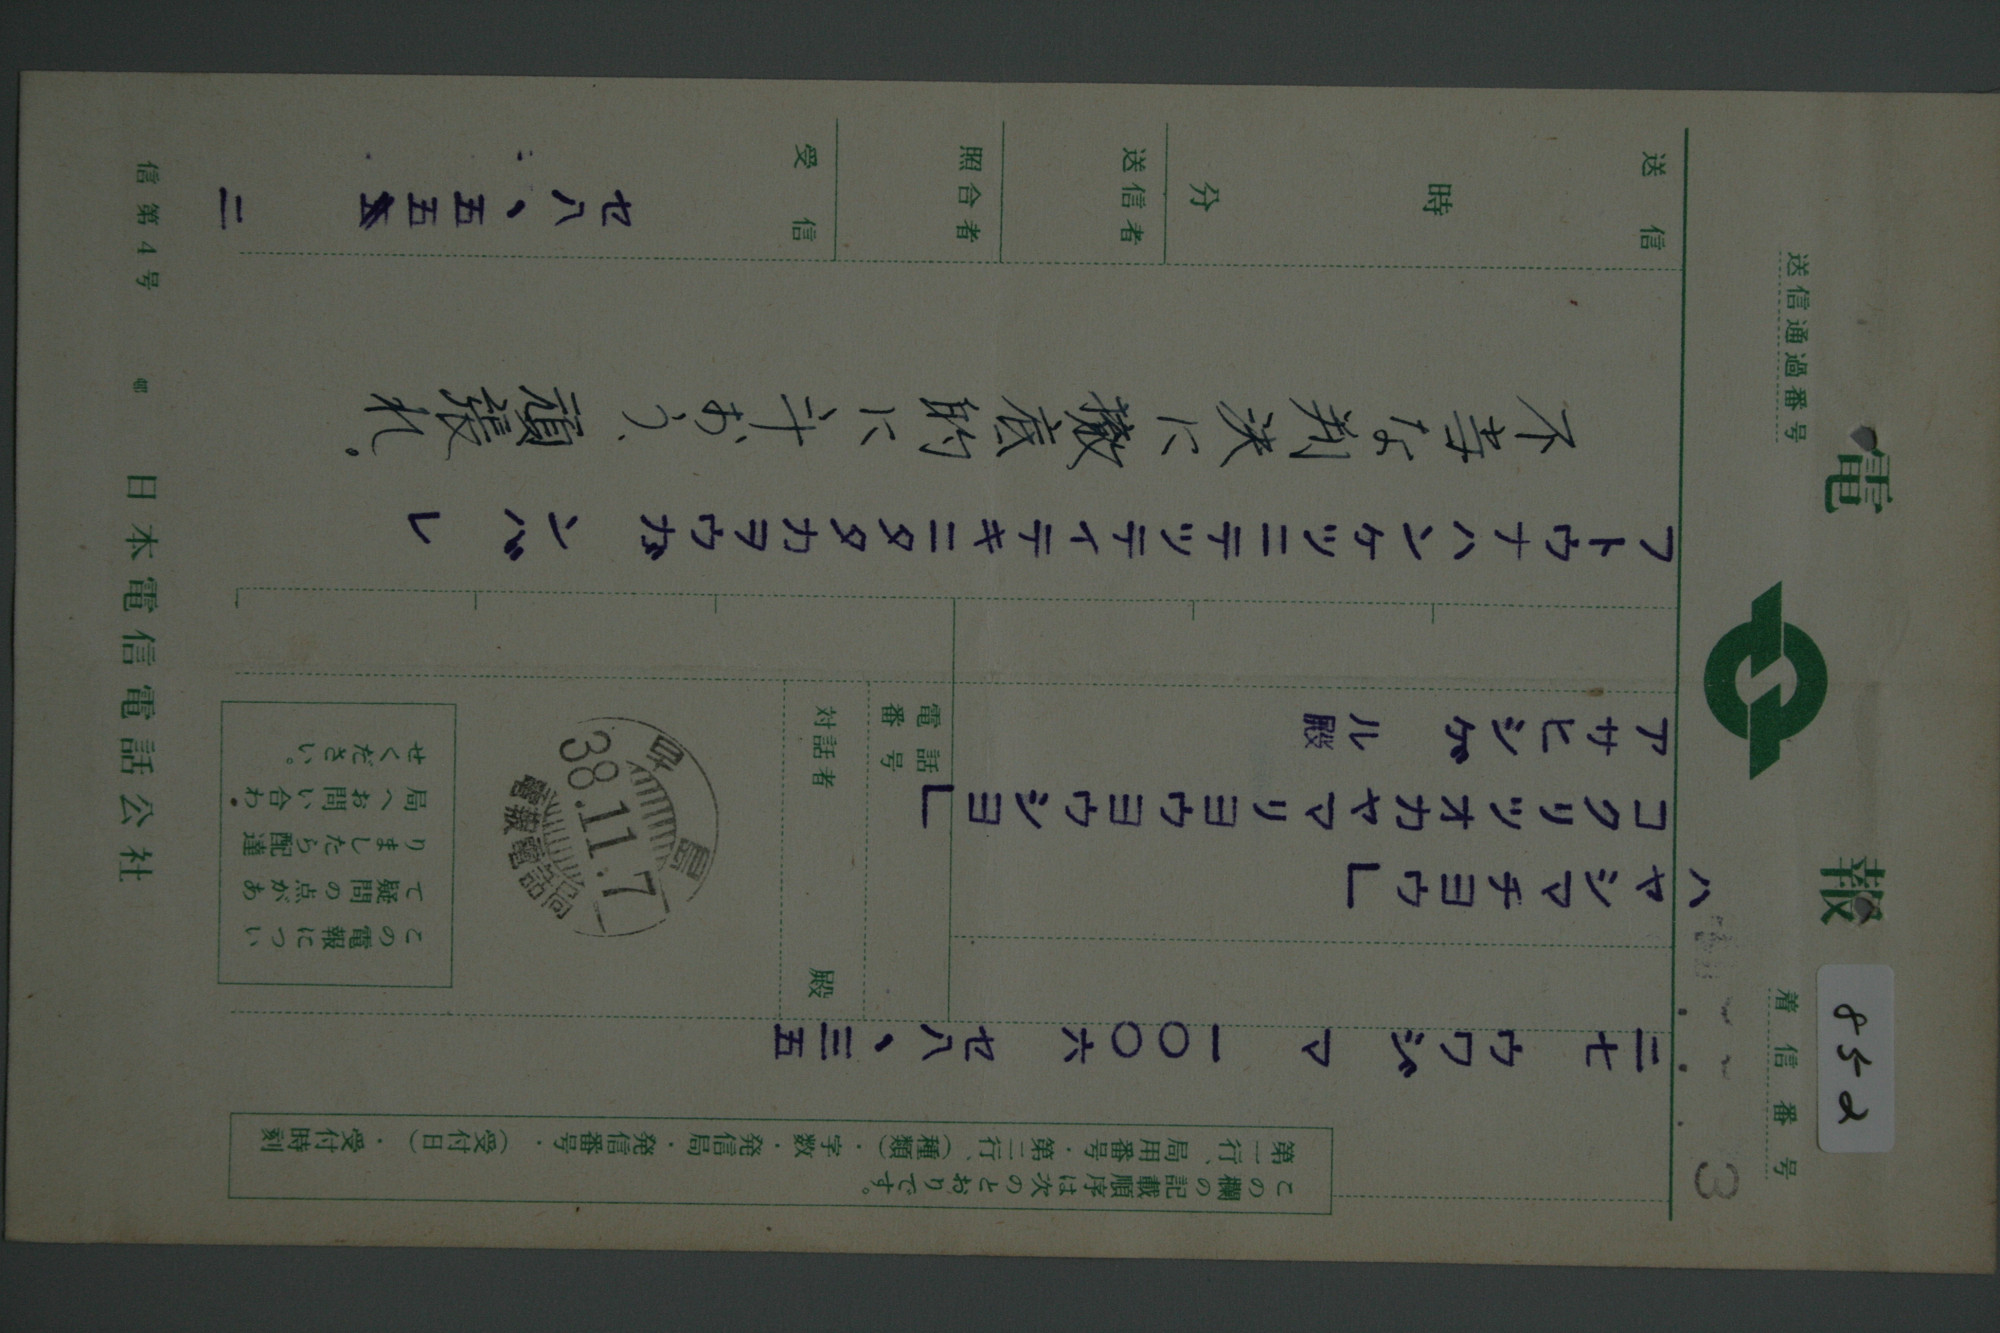 電報
送信通過番号
着信番号
852
3
この欄の記載順序は次のとおりです。
第一行、局用番号・第二行、(種類)・字数・発信局・発信番号・(受付日)・受付時刻
二七 ウワジマ 一〇〇六 セ八、三五
ハヤシマチヨウ」
コクリツオカヤマリヨウヨウシヨ」
アサヒシゲル殿
電話番号
対話者 殿
早島
38.11.7
電報電話局
この電報につい
て疑問の点があ
りましたら配達
局へお問い合わ
せください。
フトウナハンケツニテツテイテキニタタカヲウガンバレ
不当な判決に徹底的に斗おう、頑張れ。
送信 時 分
送信者
照合者
受信
セ八、五五 二
信第4号
日本電信電話公社